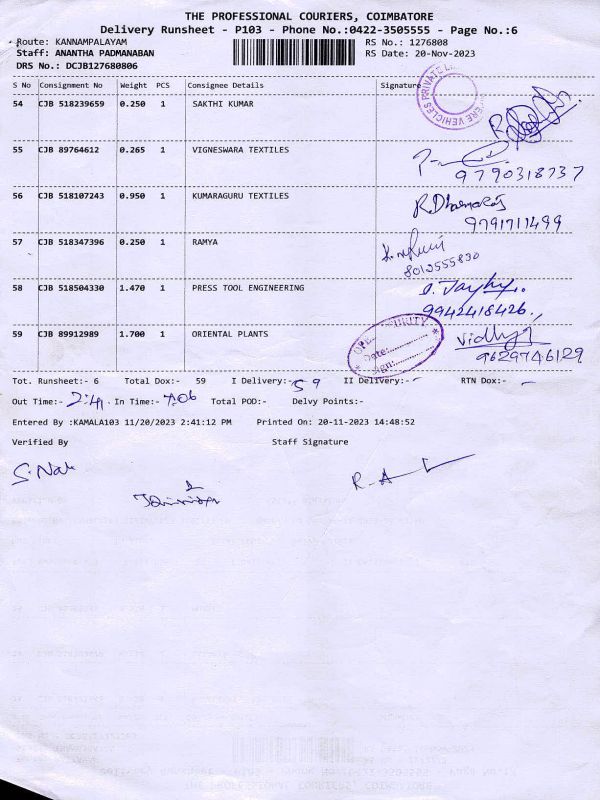 THE PROFESSIONAL COURIERS, COIMBATORE
Delivery Runsheet - P103 - Phone No.:0422-3505555 - Page No.:6
Route: KANNAMPALAYAM RS No.: 1276808
Staff: ANANTHA PADMANABAN RS Date: 20-Nov-2023
DRS No.: DCJB127680806
S No Consignment No Weight PCS Consignee Details Signature
54 CJB 518239659 0.250 1 SAKTHI KUMAR
55 CJB 89764612 0.265 1 VIGNESWARA TEXTILES
9790318737
56 CJB 518107243 0.950 1 KUMARAGURU TEXTILES R.Dharmaraj
9791711499
57 CJB 518347396 0.250 1 RAMYA
8012555830
58 CJB 518504330 1.470 1 PRESS TOOL ENGINEERING
9942418426
59 CJB 89912989 1.700 1 ORIENTAL PLANTS Vidhya
9629746129
Date:
Sign:
Tot. Runsheet:- 6 Total Dox:- 59 I Delivery:- 59 II Delivery:- - RTN Dox:- -
Out Time:- 2:41 In Time:- 7:06 Total POD:- Delvy Points:-
Entered By :KAMALA103 11/20/2023 2:41:12 PM Printed On: 20-11-2023 14:48:52
Verified By Staff Signature